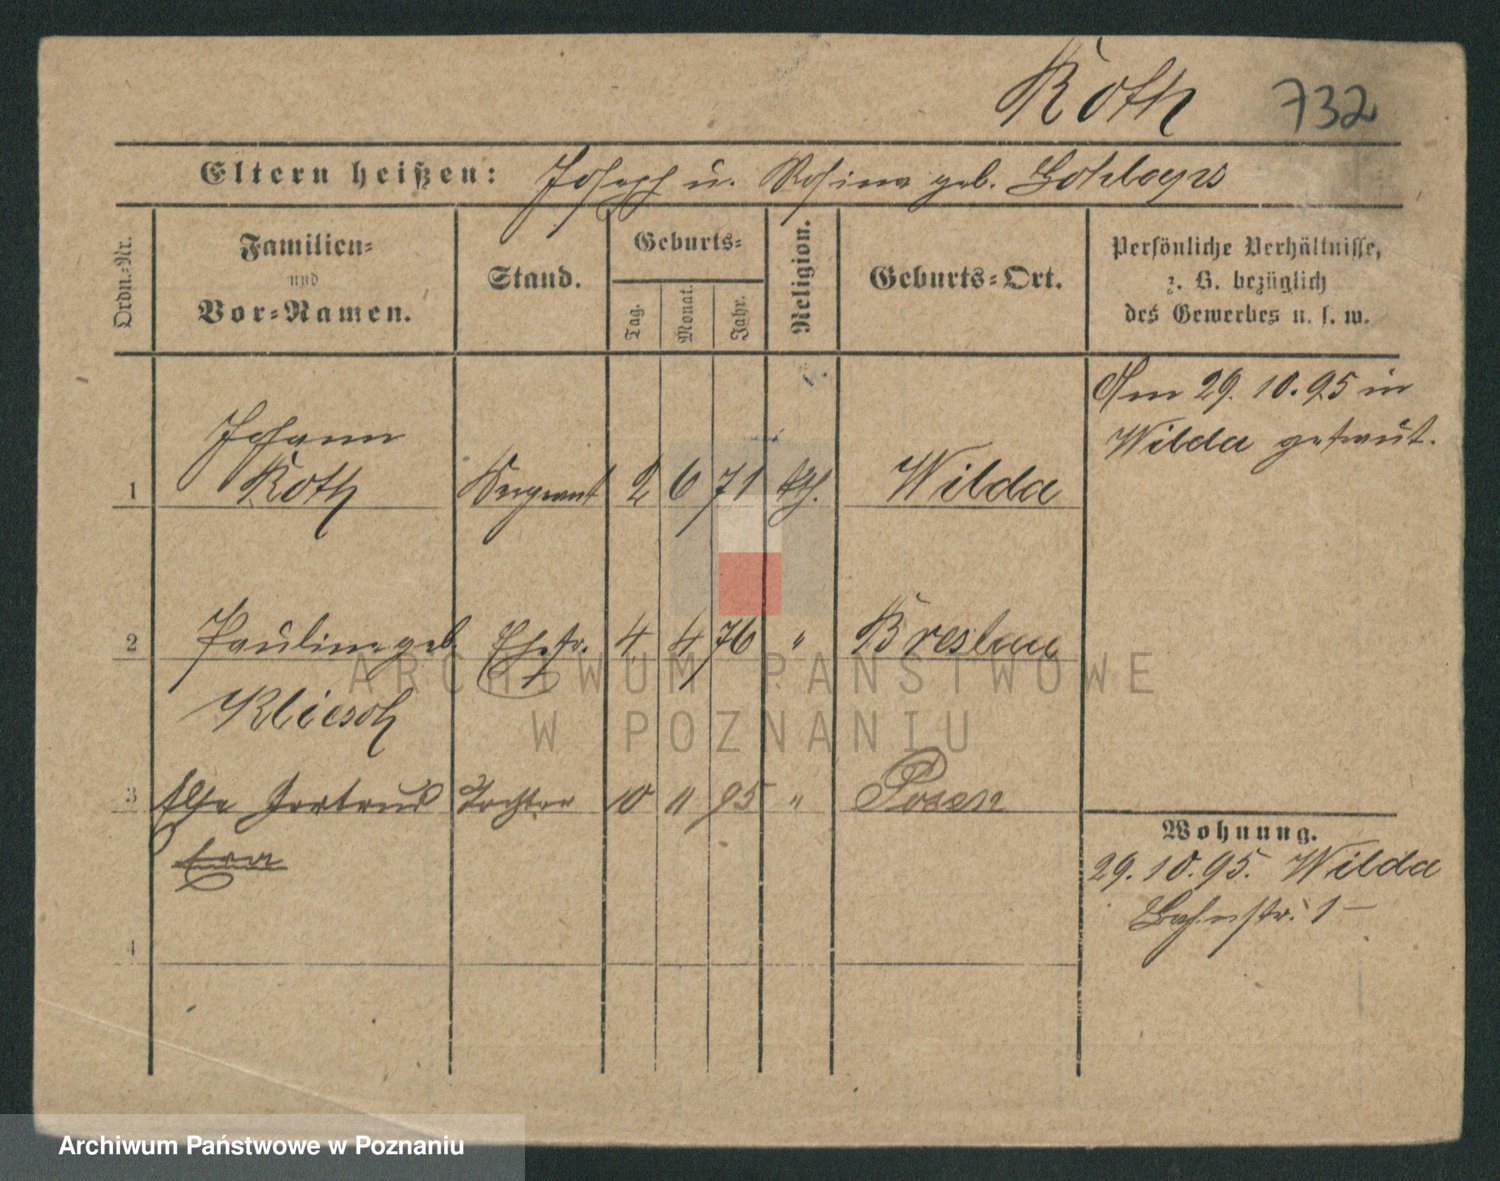 Roth 732
Eltern heißen: Joseph u. Rosina geb.
Ordn.=Nr.
Familien=
und
Vor=Namen.
Stand.
Geburts=
Tag.
Monat.
Jahr.
Religion.
Geburts=Ort.
Persönliche Verhältnisse,
z. B. bezüglich
des Gewerbes u. s. w.
Am 29. 10. 95 in
Wilda getraut.
Johann
1 Roth Sergeant 2 6 71 kth. Wilda
2 Pauline geb. Ehefr. 4 4 76 " Breslau
Kliesch
3 Else Gertrud Tochter 10 11 95 " Posen
Eva
Wohnung.
29. 10. 95. Wilda
Bahnstr. 1
4
ARCHIWUM PAŃSTWOWE
W POZNANIU
Archiwum Państwowe w Poznaniu